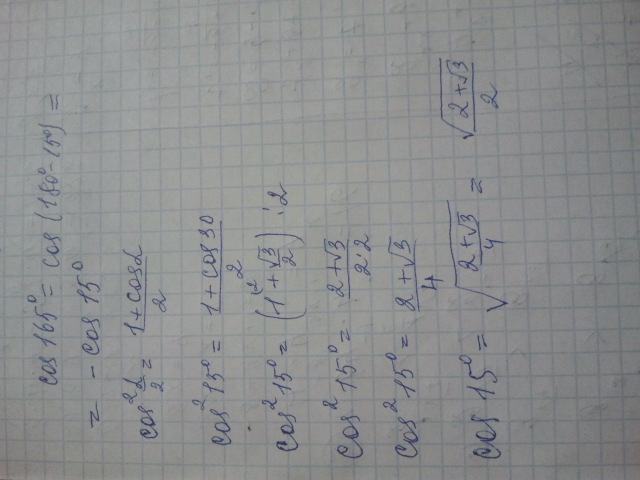 cos 165° = cos (180° - 15°) =
= - cos 15°
cos² α/2 = (1 + cos α)/2
cos² 15° = (1 + cos 30)/2
cos² 15° = (1\2 + √3/2) : 2
cos² 15° = (2 + √3)/(2·2)
cos² 15° = (2 + √3)/4
cos 15° = √((2 + √3)/4) = √(2 + √3)/2